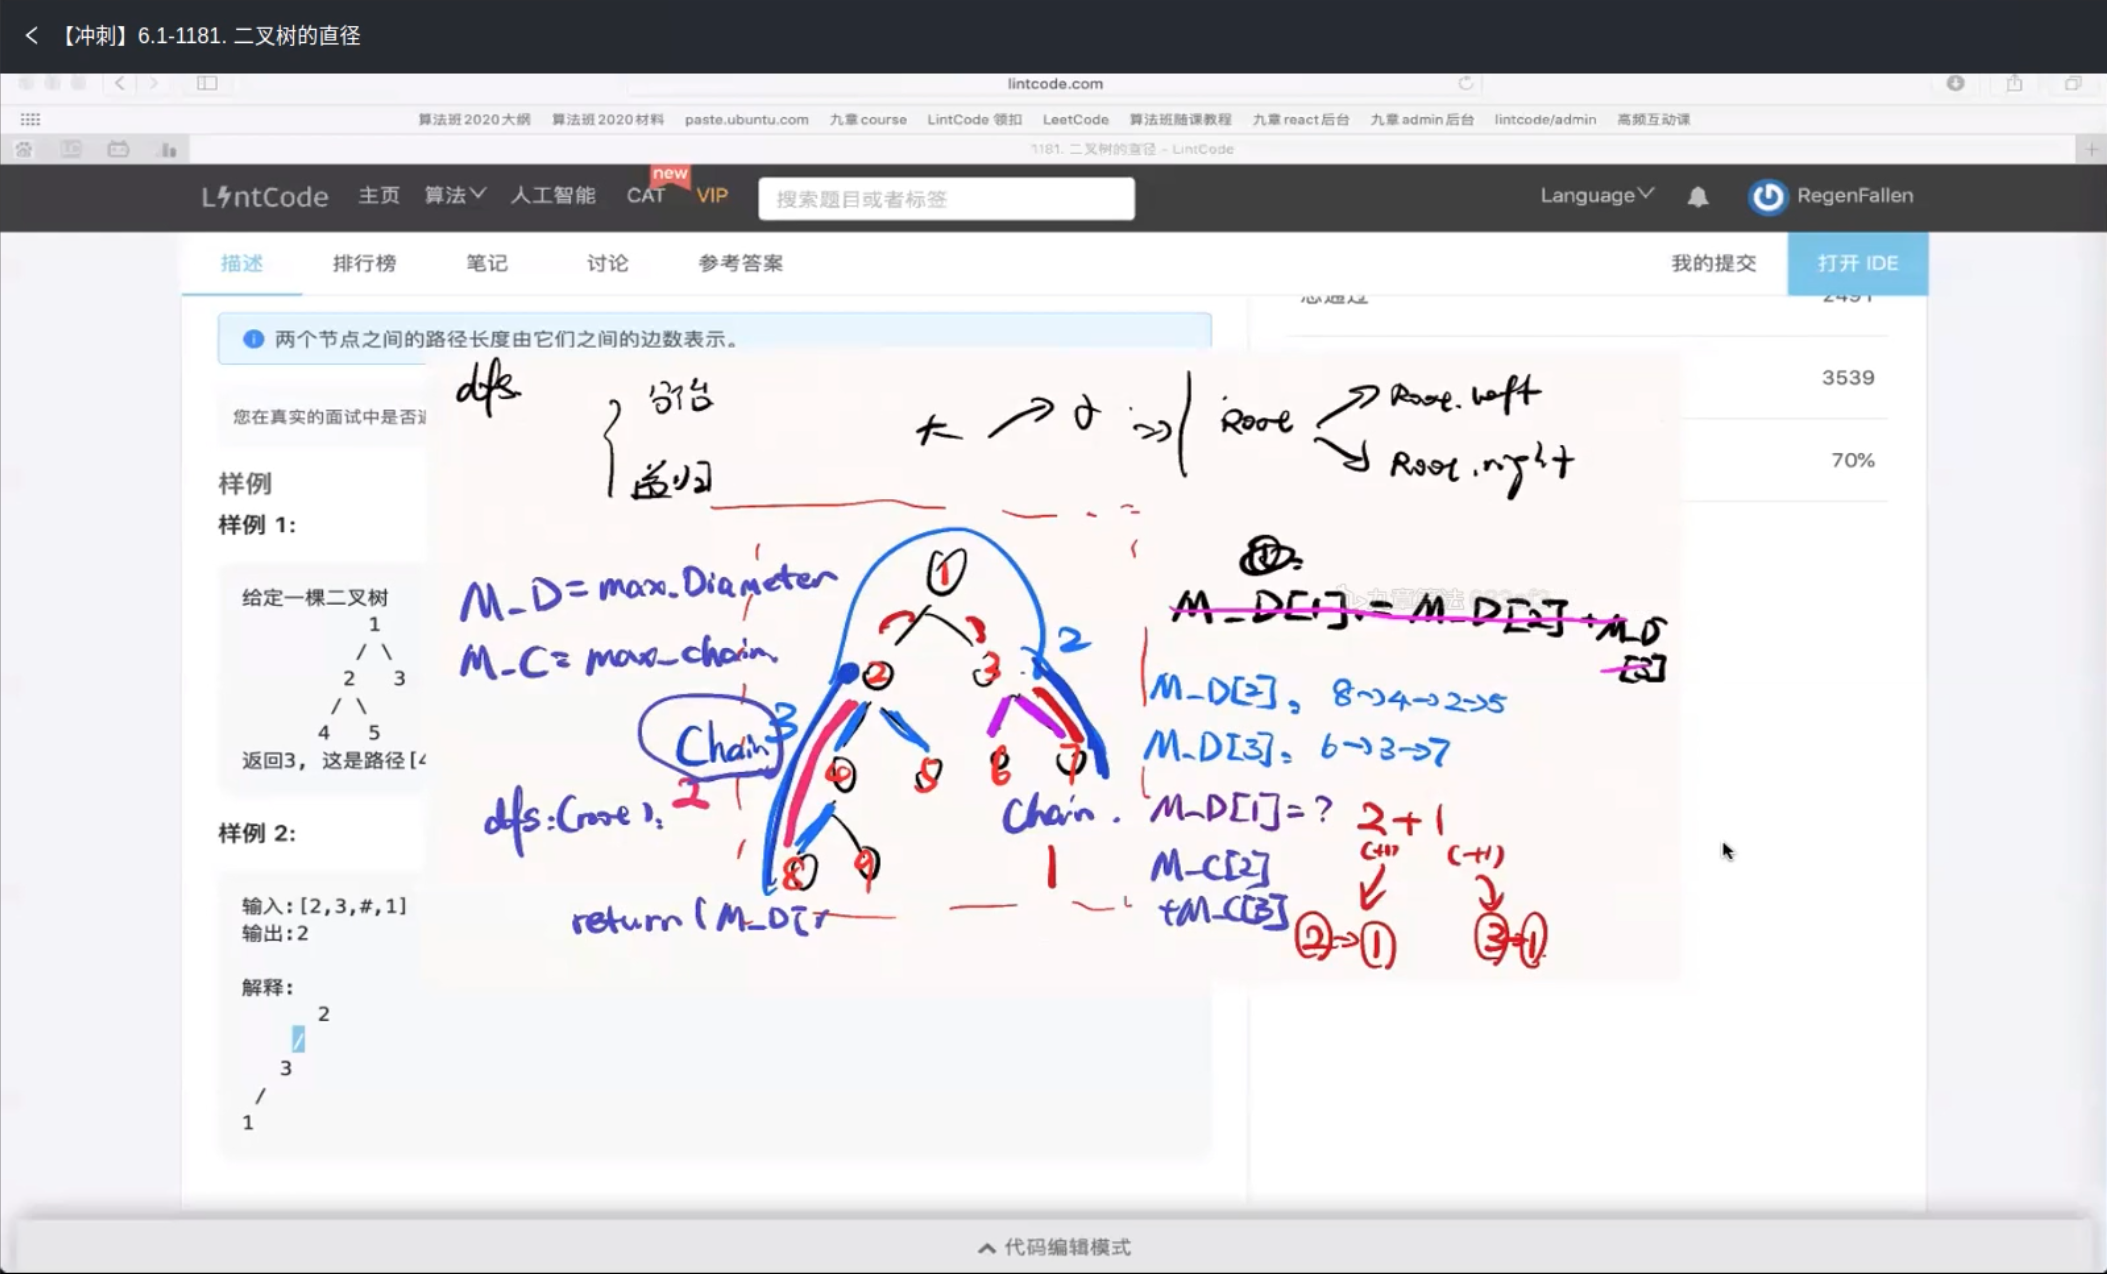 【冲刺】6.1-1181. 二叉树的直径
lintcode.com
算法班2020大纲 算法班2020材料 paste.ubuntu.com 九章course LintCode 领扣 LeetCode 算法班随课教程 九章react后台 九章admin后台 lintcode/admin 高频互动课
1181. 二叉树的直径 - LintCode
LintCode 主页 算法 人工智能 CAT new VIP 搜索题目或者标签 Language RegenFallen
描述 排行榜 笔记 讨论 参考答案 我的提交 打开 IDE
总通过 2491
两个节点之间的路径长度由它们之间的边数表示。
3539
您在真实的面试中是否遇
70%
样例
样例 1:
给定一棵二叉树
1
/ \
2 3
/ \
4 5
返回3, 这是路径[4
样例 2:
输入:[2,3,#,1]
输出:2
解释:
2
/
3
/
1
dfs
分治
递归
大 → 小 => Root
Root.left
Root.right
M_D = max_Diameter
M_C = max_chain
Chain 3
2
dfs:(root):
return (M_D[
1
2 3
4 5 6 7
8 9
2
Chain.
1
M_D[1] = M_D[2] + M_D
[3]
M_D[2]: 8→4→2→5
M_D[3]: 6→3→7
M_D[1] = ? 2+1
(+1) (+1)
M_C[2]
+M_C[3]
2→1 3→1
代码编辑模式